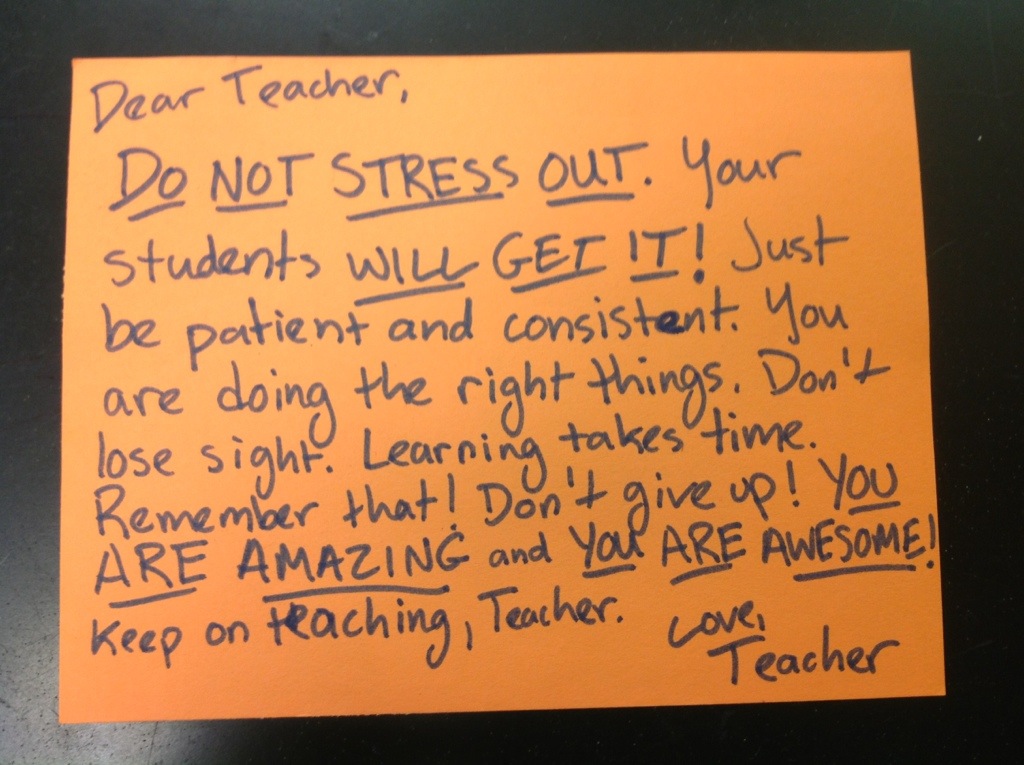 Dear Teacher,
DO NOT STRESS OUT. Your
students WILL GET IT! Just
be patient and consistent. You
are doing the right things. Don't
lose sight. Learning takes time.
Remember that! Don't give up! YOU
ARE AMAZING and YOU ARE AWESOME!
Keep on teaching, Teacher.
Love,
Teacher